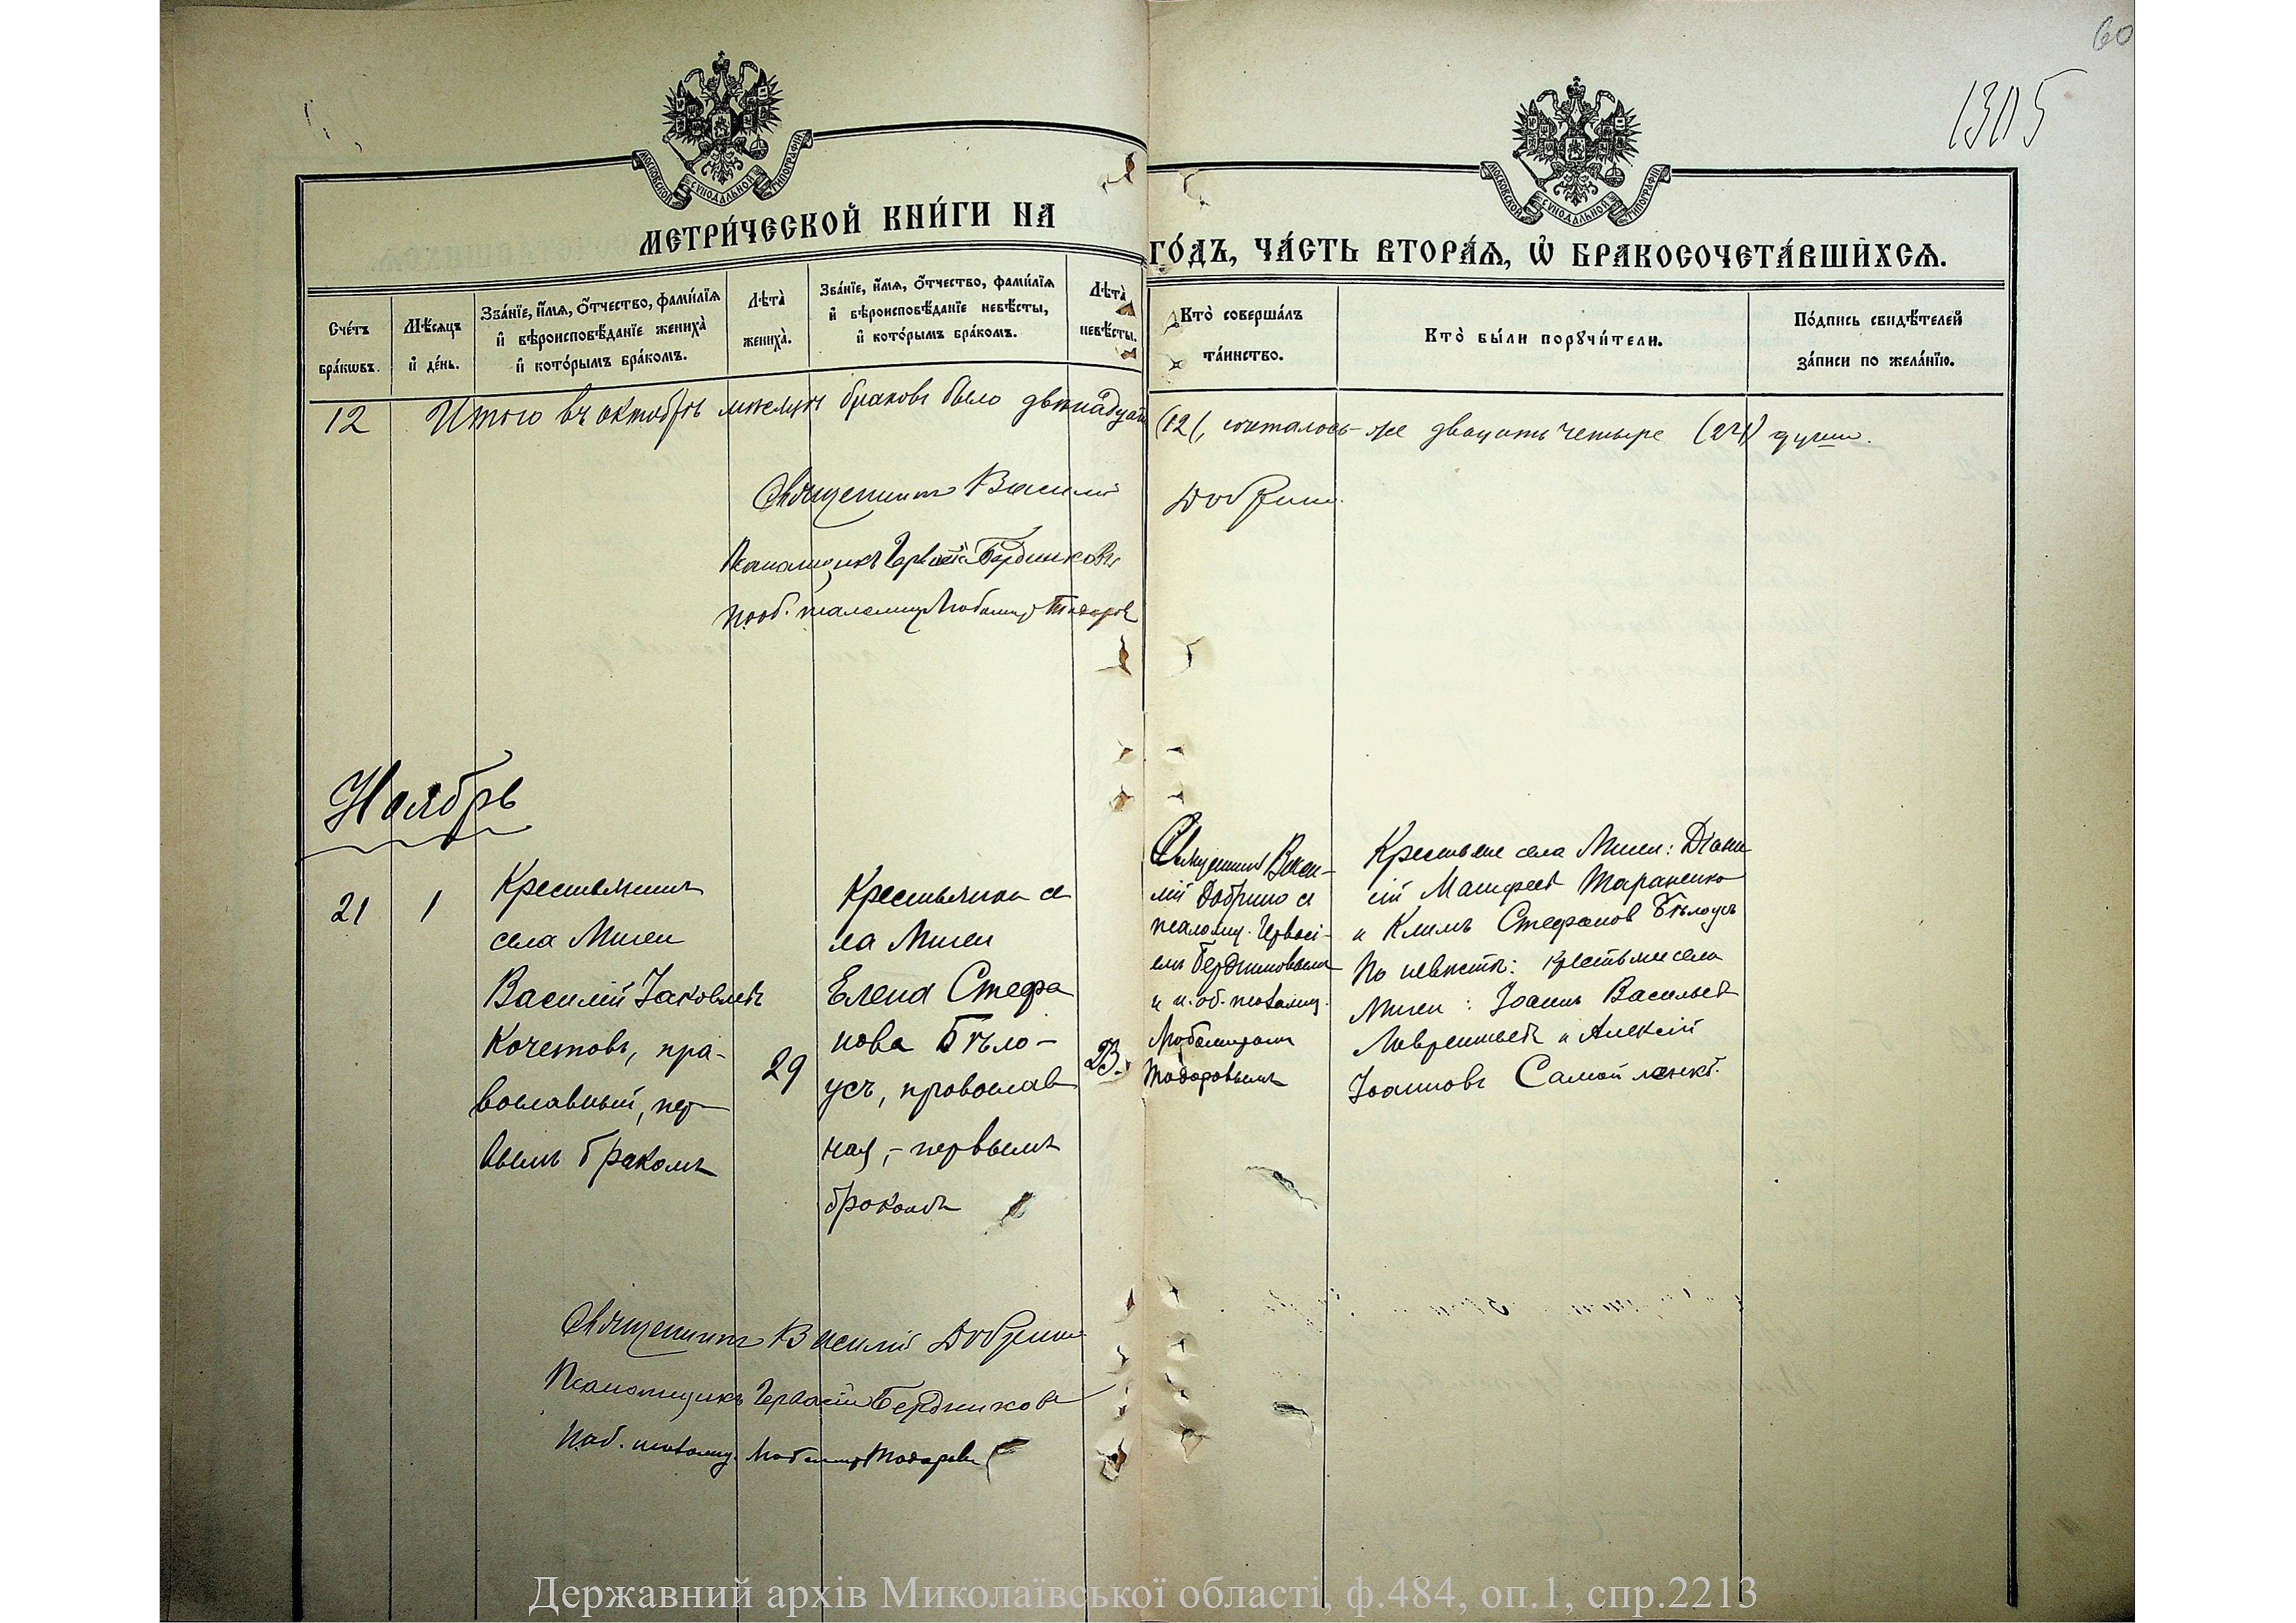 60
1305
МОСКОВСКОЙ СѴНОДАЛЬНОЙ ТИПОГРАФІИ
МОСКОВСКОЙ СѴНОДАЛЬНОЙ ТИПОГРАФІИ
МЕТРИ́ЧЕСКОЙ КНИ́ГИ НА
ГО́ДЪ, ЧА́СТЬ ВТОРА́Ѧ, Ѡ҆ БРАКОСОЧЕТА́ВШИХСѦ.
Сче́тъ бра́кѡвъ.
Мѣ́сяцъ и҆ де́нь.
Зва́нїе, и҆́мѧ, ѻ҆́тчество, фами́лїѧ и҆ вѣроисповѣ́данїе жениха̀ и҆ кото́рымъ бра́комъ.
Лѣта̀ жениха̀.
Зва́нїе, и҆́мѧ, ѻ҆́тчество, фами́лїѧ и҆ вѣроисповѣ́данїе невѣ́сты, и҆ кото́рымъ бра́комъ.
Лѣта̀ невѣ́сты.
Кто̀ соверша́лъ та́инство.
Кто̀ бы́ли порꙋчи́тели.
По́дпись свидѣ́телей за́писи по жела́нїю.
12 Итого въ октябрѣ мѣсяцѣ браковъ было двѣнадцать (12), сочталось-же двацать четыре (24) души.
Священникъ Василій Добрин
Псаломщикъ Гервасій Бердниковъ
псаломщ Тодоров
Ноябрь
21
1
Крестьянинъ
села Мигеи
Василій Іаковлевъ
Кочетовъ, пра-
вославный, пер-
вымъ бракомъ
29
Крестьянка се
ла Мигеи
Елена Стефа
нова Бѣло-
усъ, православ
ная, - первымъ
бракомъ
23.
Священникъ Васи-
лій Добрин с
псаломщ. Герваси-
емъ Бердниковымъ
и и. об. псаломщ.
Тодоровымъ
Крестьяне села Мигеи: Діони
сій Матфеев Тараненко
и Климъ Стефанов Бѣлоусъ
По невѣстѣ: крестьяне села
Мигеи: Іоаннъ Васильевъ
Лаврентьевъ и Алексій
Іоанновъ Самойленко.
Священникъ Василій Добрин
Псаломщикъ Гервасій Бердниковъ
псаломщ. Тодоровъ
Державний архів Миколаївської області, ф.484, оп.1, спр.2213